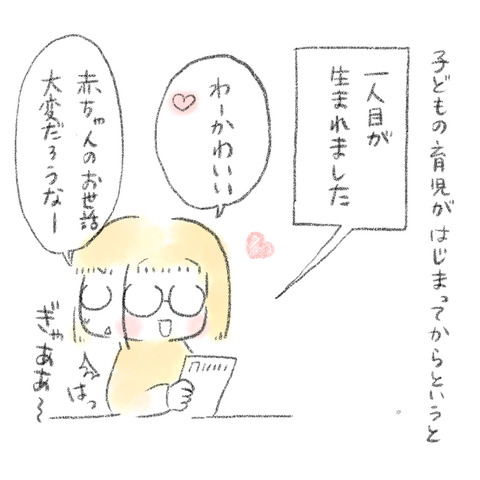 子どもの育児がはじまってからというと
一人目が
生まれました
わーかわいい♡
赤ちゃんのお世話
大変だろうなー
はっ
ぎゃあぁ〜